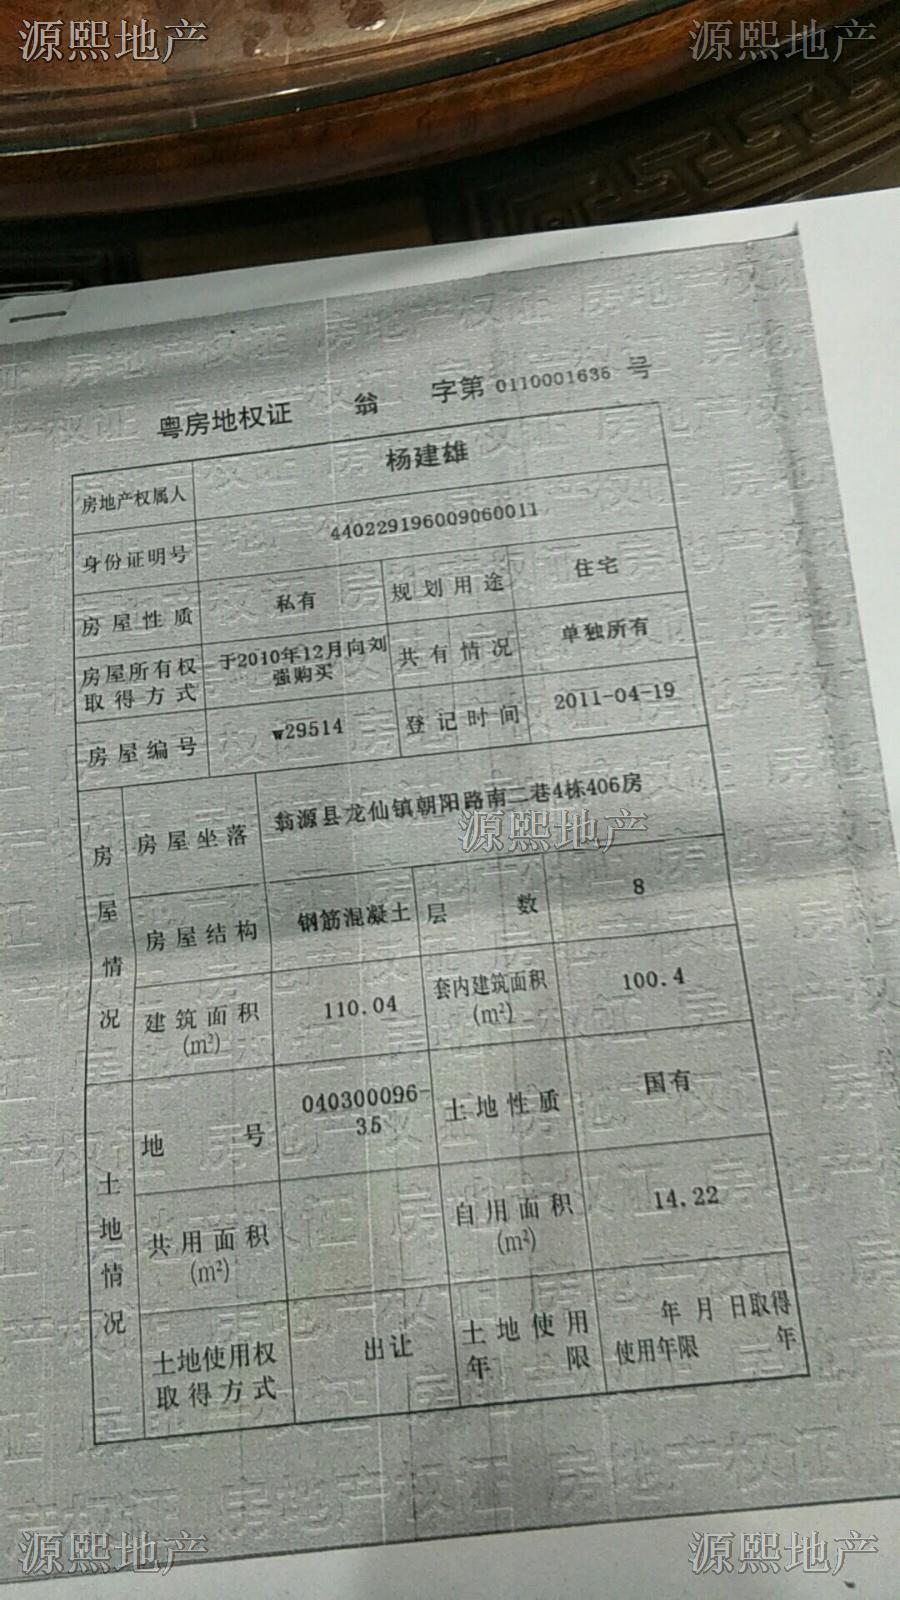 源熙地产 源熙地产
粤房地权证 翁 字第 0110001635 号
房地产权属人 杨建雄
身份证明号 440229196009060011
房屋性质 私有 规划用途 住宅
房屋所有权取得方式 于2010年12月向刘强购买 共有情况 单独所有
房屋编号 w29514 登记时间 2011-04-19
房屋情况
房屋坐落 翁源县龙仙镇朝阳路南二巷4栋406房
源熙地产
房屋结构 钢筋混凝土 层数 8
建筑面积(m²) 110.04 套内建筑面积(m²) 100.4
土地情况
地号 040300096-35 土地性质 国有
共用面积(m²) 自用面积(m²) 14.22
土地使用权取得方式 出让 土地使用年限 年 月 日取得使用年限 年
源熙地产 源熙地产